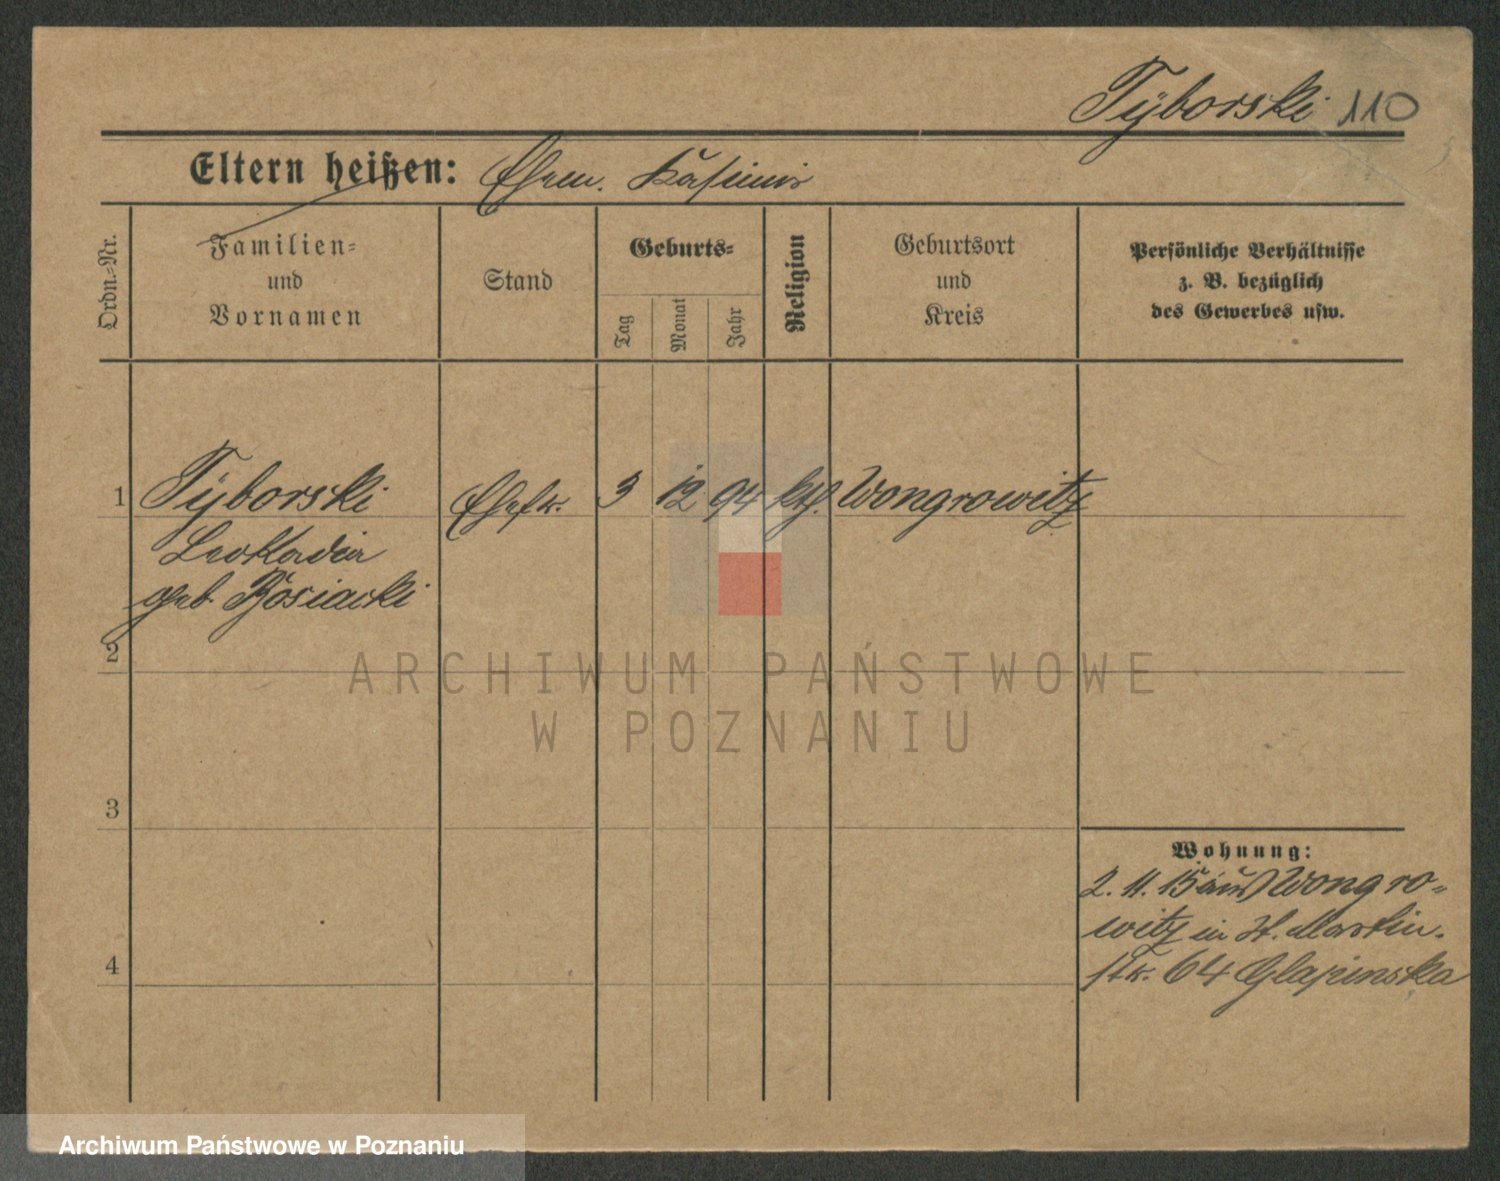 Tÿborski 110
Eltern heißen: Ehem. Kasimir
Ordn.=Nr.
Familien=
und
Vornamen
Stand
Geburts=
Tag
Monat
Jahr
Religion
Geburtsort
und
Kreis
Persönliche Verhältnisse
z. B. bezüglich
des Gewerbes usw.
1 Tÿborski Ehefr. 3 12 94 kth. Wongrowitz
Leokadia
geb. Rosiacki
2
3
4
Wohnung:
2. 11. 15 aus Wongro=
witz in St. Martin.
str. 64
ARCHIWUM PAŃSTWOWE
W POZNANIU
Archiwum Państwowe w Poznaniu